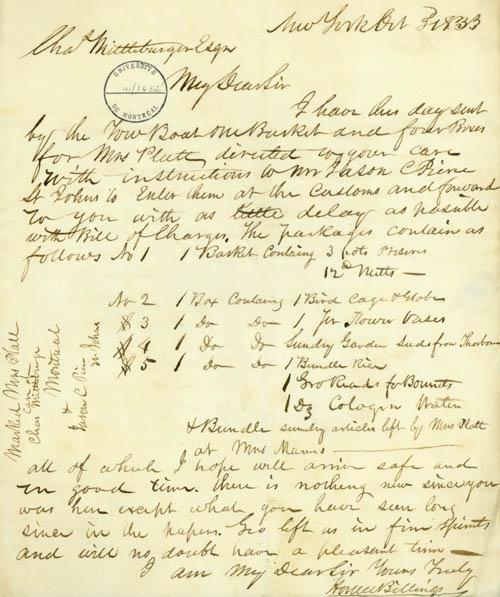 New York Oct 3 1833
Chas Mittleburger Esqr
UNIVERSITÉ DE MONTRÉAL
My Dear Sir
I have this day sent
by the Tow Boat one Basket and four Boxes
for Mrs Platt, directed to your care
with instructions to Mr Jason C Pierce
St Johns to Enter them at the Customs and forward
to you with as little delay as possible
with Bill of Charges. The packages contain as
follows No 1 1 Basket Containg 3 pots
12
No 2 1 Box Containg 1 Bird Cage & Globe
3 1 Do Do 1 pr Flower Vases
4 1 Do Do Sundry Garden Seeds from Thorburn
5 1 Do Do 1 Bundle
1 Gro for Bonnets
1 Dz Cologne Water
& Bundle sundry articles left by Mrs Platt
at Mrs Manns
Marked Mrs Platt
care of
Chas Mittleburger
Montreal
&
Jason C Pierce
St Johns
all of which I hope will arrive safe and
in good time. there is nothing new since you
was here except what you have seen long
since in the papers. Geo left us in fine spirits
and will no doubt have a pleasant time —
I am My Dear Sir Yours Truly
Horace Billings